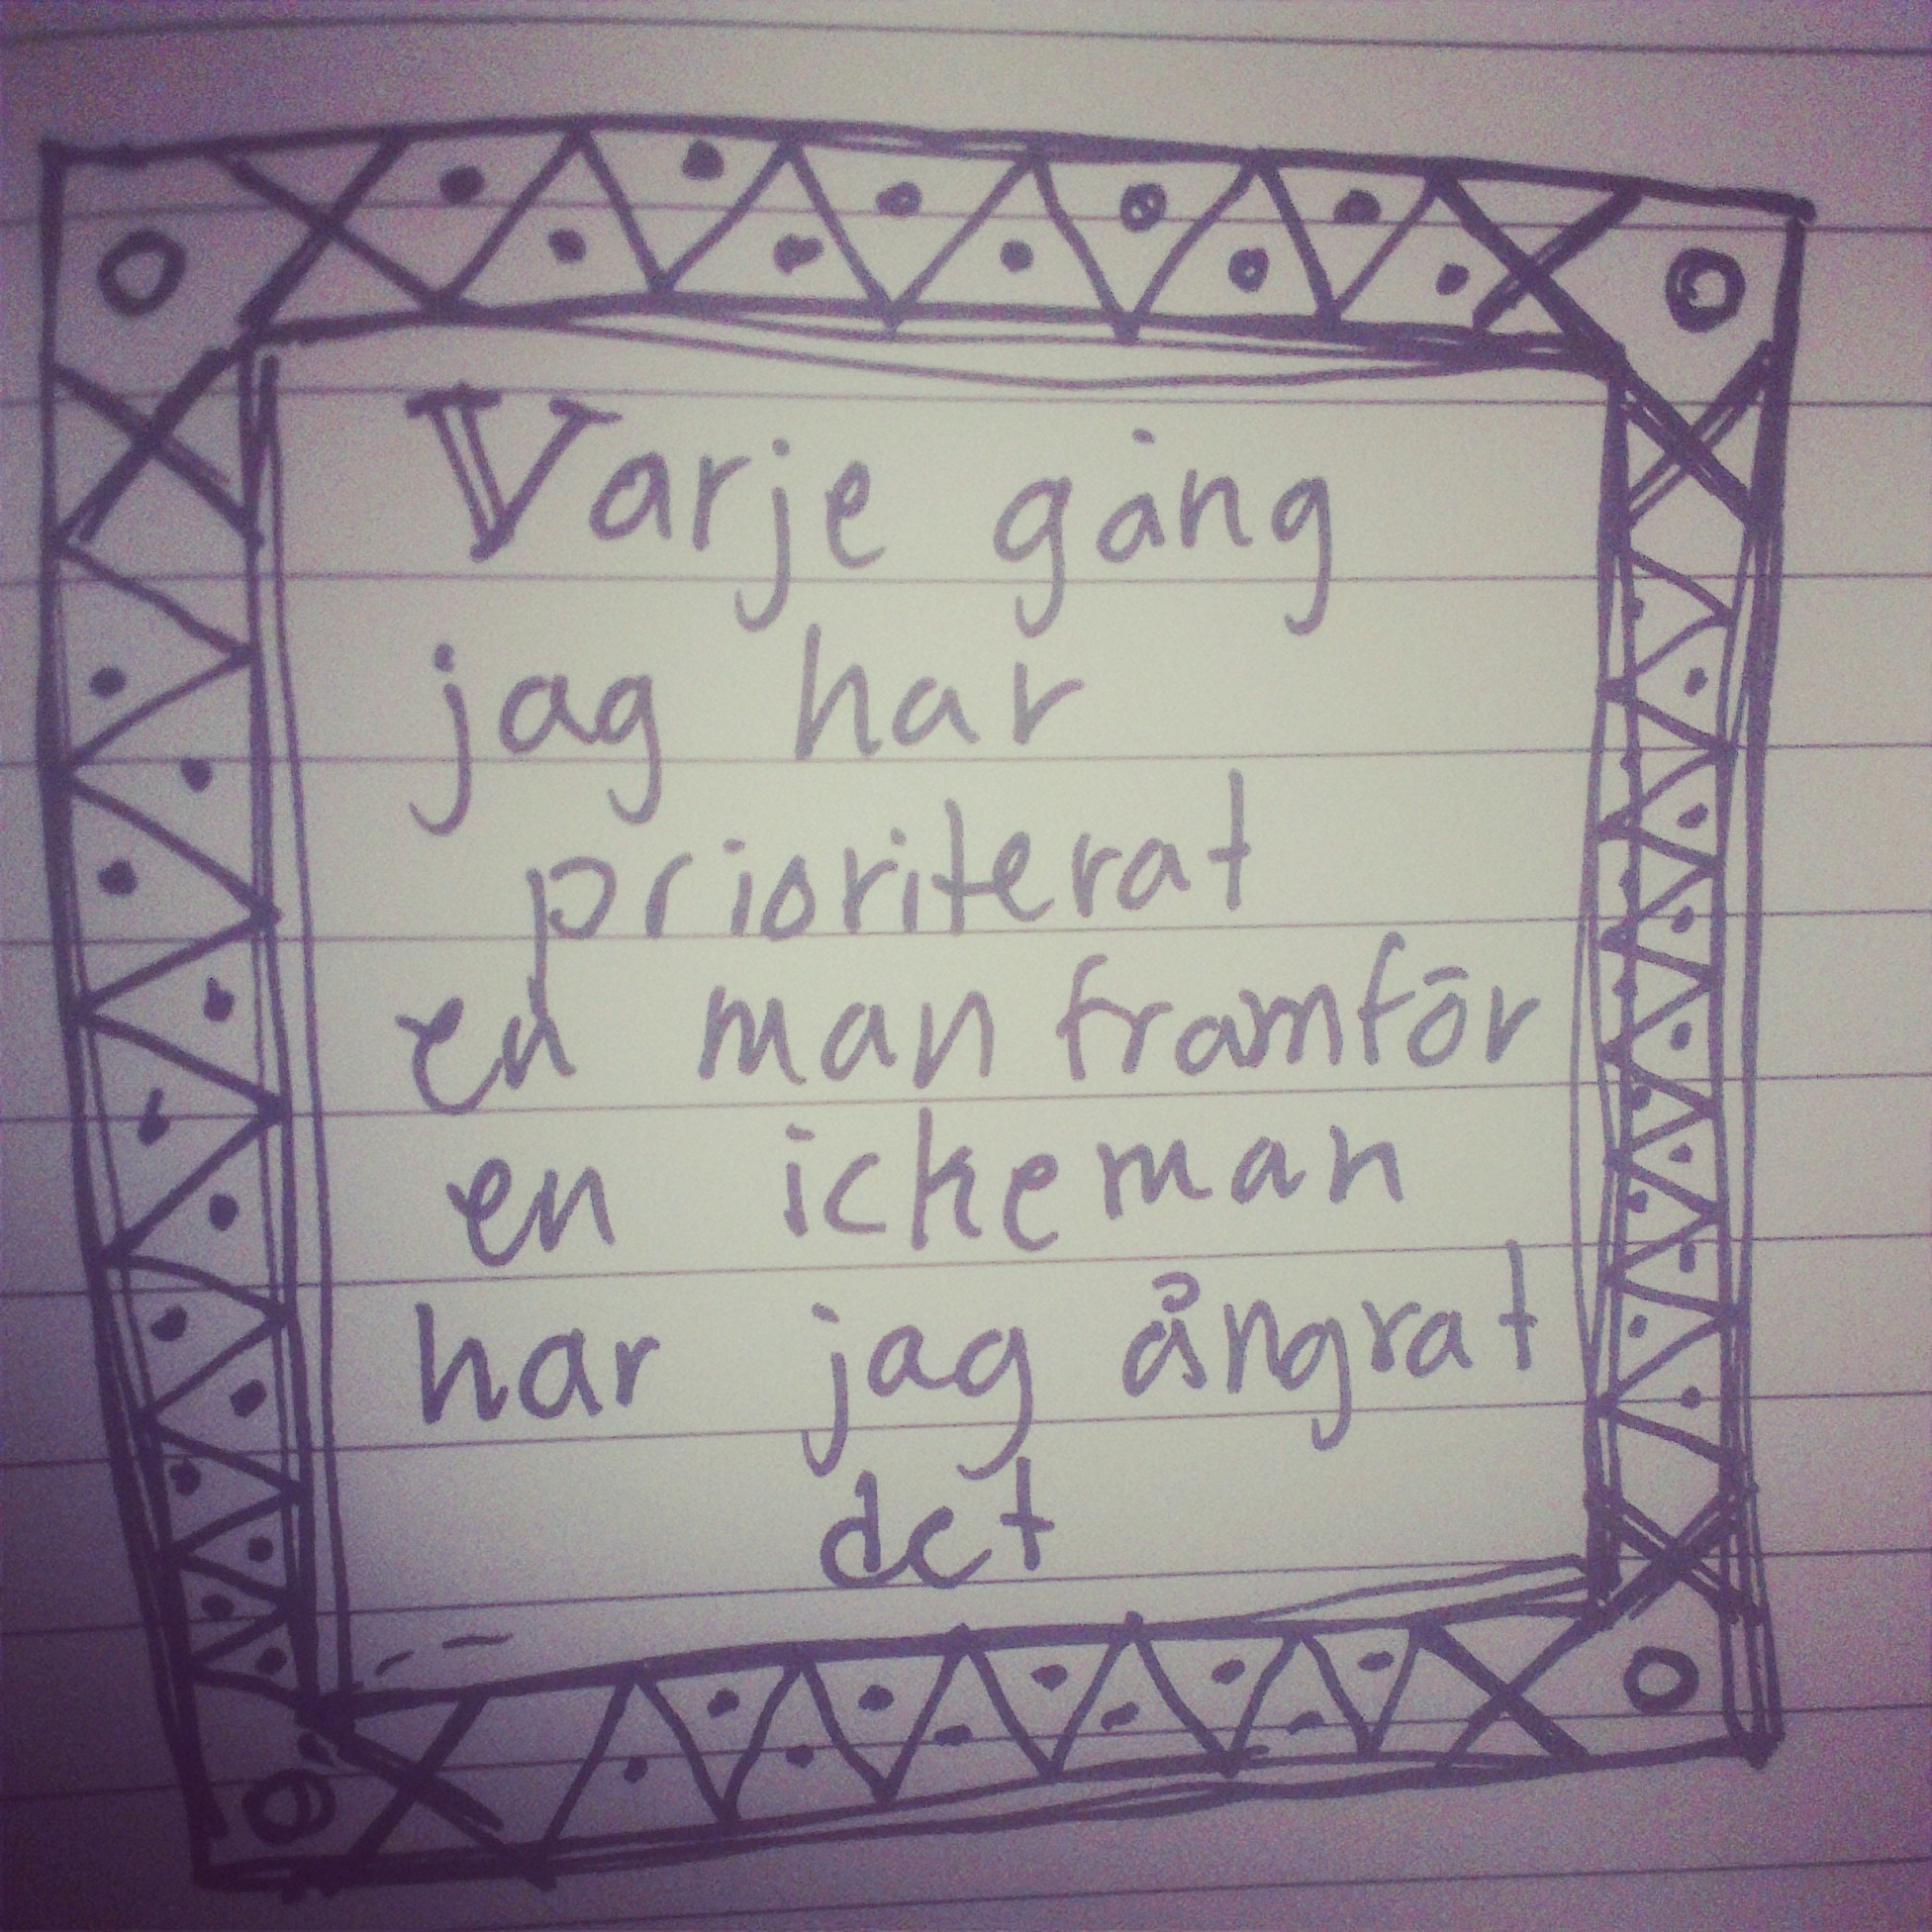 Varje gång
jag har
prioriterat
en man framför
en ickeman
har jag ångrat
det